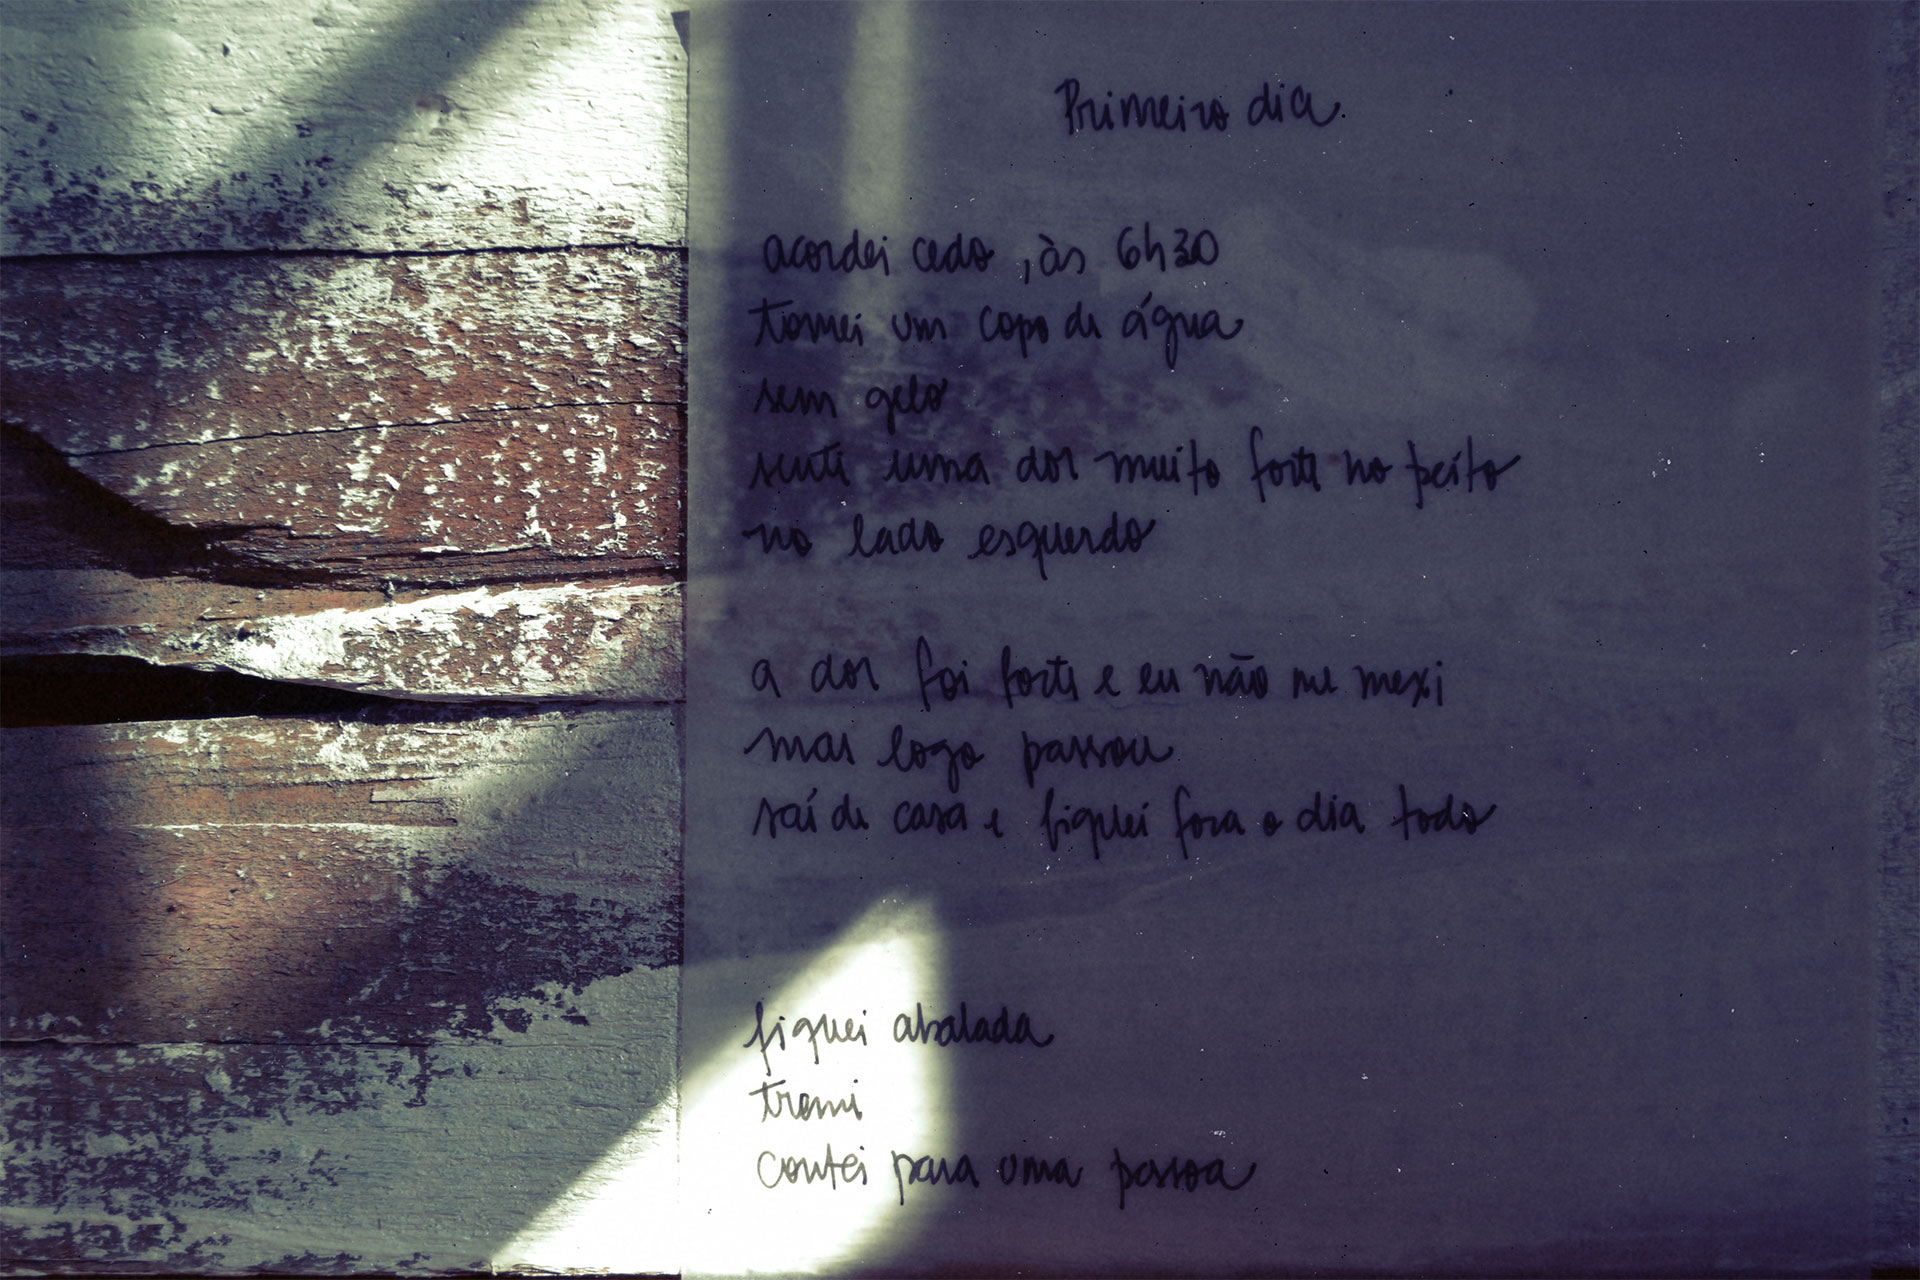 Primeiro dia.
acordei cedo, às 6h30
tomei um copo de água
sem gelo
senti uma dor muito forte no peito
no lado esquerdo
a dor foi forte e eu não me mexi
mas logo passou
saí de casa e fiquei fora o dia todo
fiquei abalada
tremi
contei para uma pessoa